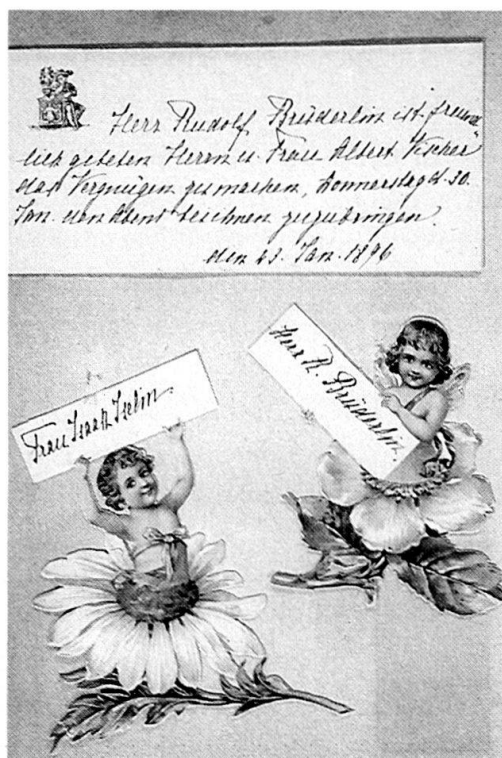 Herr Rudolf Brüderlin ist freund-
lich gebeten Herrn u. Frau Albert Vischer
das Vergnügen zu machen, Donnerstag d. 30.
Jan. den Abend bei ihnen zuzubringen.
den 23. Jan. 1896
Herr R. Brüderlin.
Frau Isaak Iselin